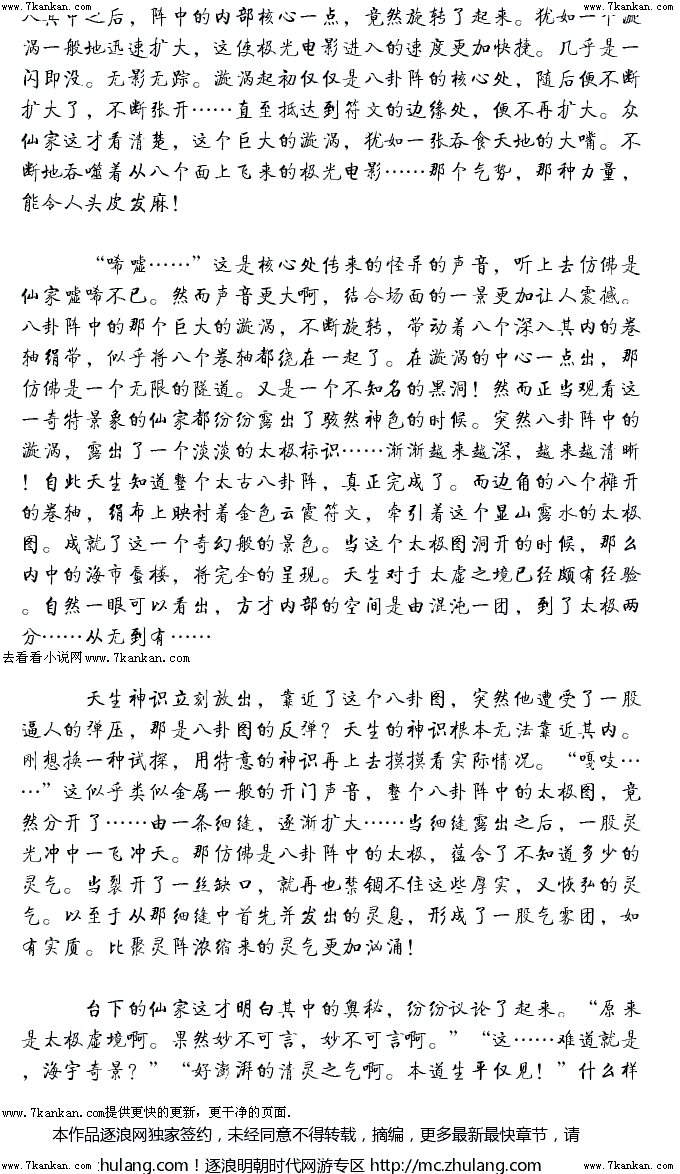 www.7kankan.com www.7kankan.com
入其中之后，阵中的内部核心一点，竟然旋转了起来。犹如一个漩
涡一般地迅速扩大，这使极光电影进入的速度更加快捷。几乎是一
闪即没。无影无踪。漩涡起初仅仅是八卦阵的核心处，随后便不断
扩大了，不断张开……直至抵达到符文的边缘处，便不再扩大。众
仙家这才看清楚，这个巨大的漩涡，犹如一张吞食天地的大嘴。不
断地吞噬着从八个面上飞来的极光电影……那个气势，那种力量，
能令人头皮发麻！
“唏嘘……”这是核心处传来的怪异的声音，听上去仿佛是
仙家嘘唏不已。然而声音更大啊，结合场面的一景更加让人震撼。
八卦阵中的那个巨大的漩涡，不断旋转，带动着八个深入其内的卷
轴绢带，似乎将八个卷轴都绕在一起了。在漩涡的中心一点出，那
仿佛是一个无限的隧道。又是一个不知名的黑洞！然而正当观看这
一奇特景象的仙家都纷纷露出了骇然神色的时候。突然八卦阵中的
漩涡，露出了一个淡淡的太极标识……渐渐越来越深，越来越清晰
！自此天生知道整个太古八卦阵，真正完成了。而边角的八个摊开
的卷轴，绢布上映衬着金色云霞符文，牵引着这个显山露水的太极
图。成就了这一个奇幻般的景色。当这个太极图洞开的时候，那么
内中的海市蜃楼，将完全的呈现。天生对于太虚之境已经颇有经验
。自然一眼可以看出，方才内部的空间是由混沌一团，到了太极两
分……从无到有……
去看看小说网www.7kankan.com
天生神识立刻放出，靠近了这个八卦图，突然他遭受了一股
逼人的弹压，那是八卦图的反弹？天生的神识根本无法靠近其内。
刚想换一种试探，用特意的神识再上去摸摸看实际情况。“嘎吱…
…”这似乎类似金属一般的开门声音，整个八卦阵中的太极图，竟
然分开了……由一条细缝，逐渐扩大……当细缝露出之后，一股灵
光冲中一飞冲天。那仿佛是八卦阵中的太极，蕴含了不知道多少的
灵气。当裂开了一丝缺口，就再也禁锢不住这些厚实，又恢弘的灵
气。以至于从那细缝中首先并发出的灵息，形成了一股气雾团，如
有实质。比聚灵阵浓缩来的灵气更加汹涌！
台下的仙家这才明白其中的奥秘，纷纷议论了起来。“原来
是太极虚境啊。果然妙不可言，妙不可言啊。”“这……难道就是
，海宇奇景？”“好澎湃的清灵之气啊。本道生平仅见！”什么样
www.7kankan.com提供更快的更新，更干净的页面.
本作品逐浪网独家签约，未经同意不得转载，摘编，更多最新最快章节，请
www.7kankan.com zhulang.com！逐浪明朝时代网游专区 http://mc.zhulang.com www.7kankan.com